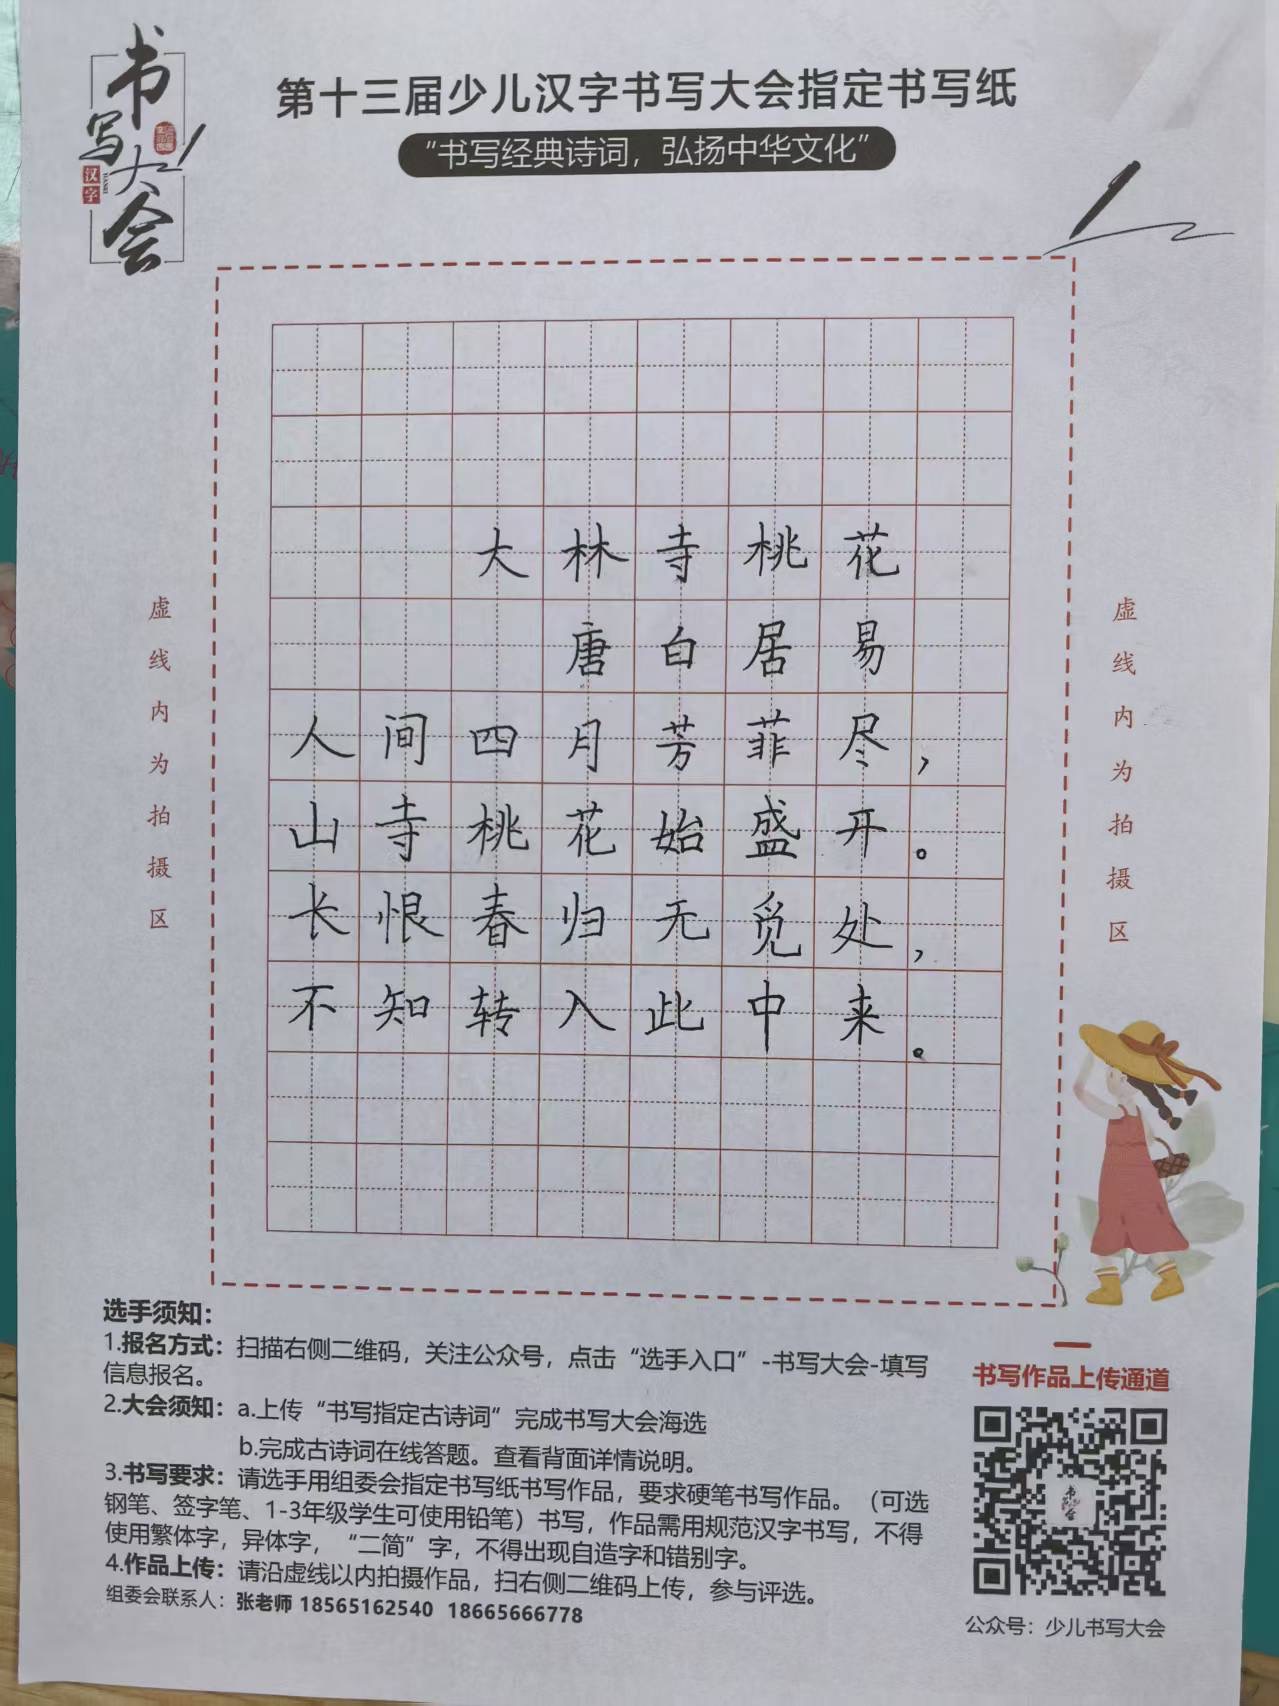 书写大会
汉字
第十三届少儿汉字书写大会指定书写纸
“书写经典诗词，弘扬中华文化”
虚线内为拍摄区
大林寺桃花
唐白居易
人间四月芳菲尽，
山寺桃花始盛开。
长恨春归无觅处，
不知转入此中来。
虚线内为拍摄区
选手须知：
1.报名方式：扫描右侧二维码，关注公众号，点击“选手入口”-书写大会-填写
信息报名。
2.大会须知：a.上传“书写指定古诗词”完成书写大会海选
b.完成古诗词在线答题。查看背面详情说明。
3.书写要求：请选手用组委会指定书写纸书写作品，要求硬笔书写作品。（可选
钢笔、签字笔、1-3年级学生可使用铅笔）书写，作品需用规范汉字书写，不得
使用繁体字，异体字，“二简”字，不得出现自造字和错别字。
4.作品上传：请沿虚线以内拍摄作品，扫右侧二维码上传，参与评选。
组委会联系人：张老师 18565162540 18665666778
书写作品上传通道
公众号：少儿书写大会